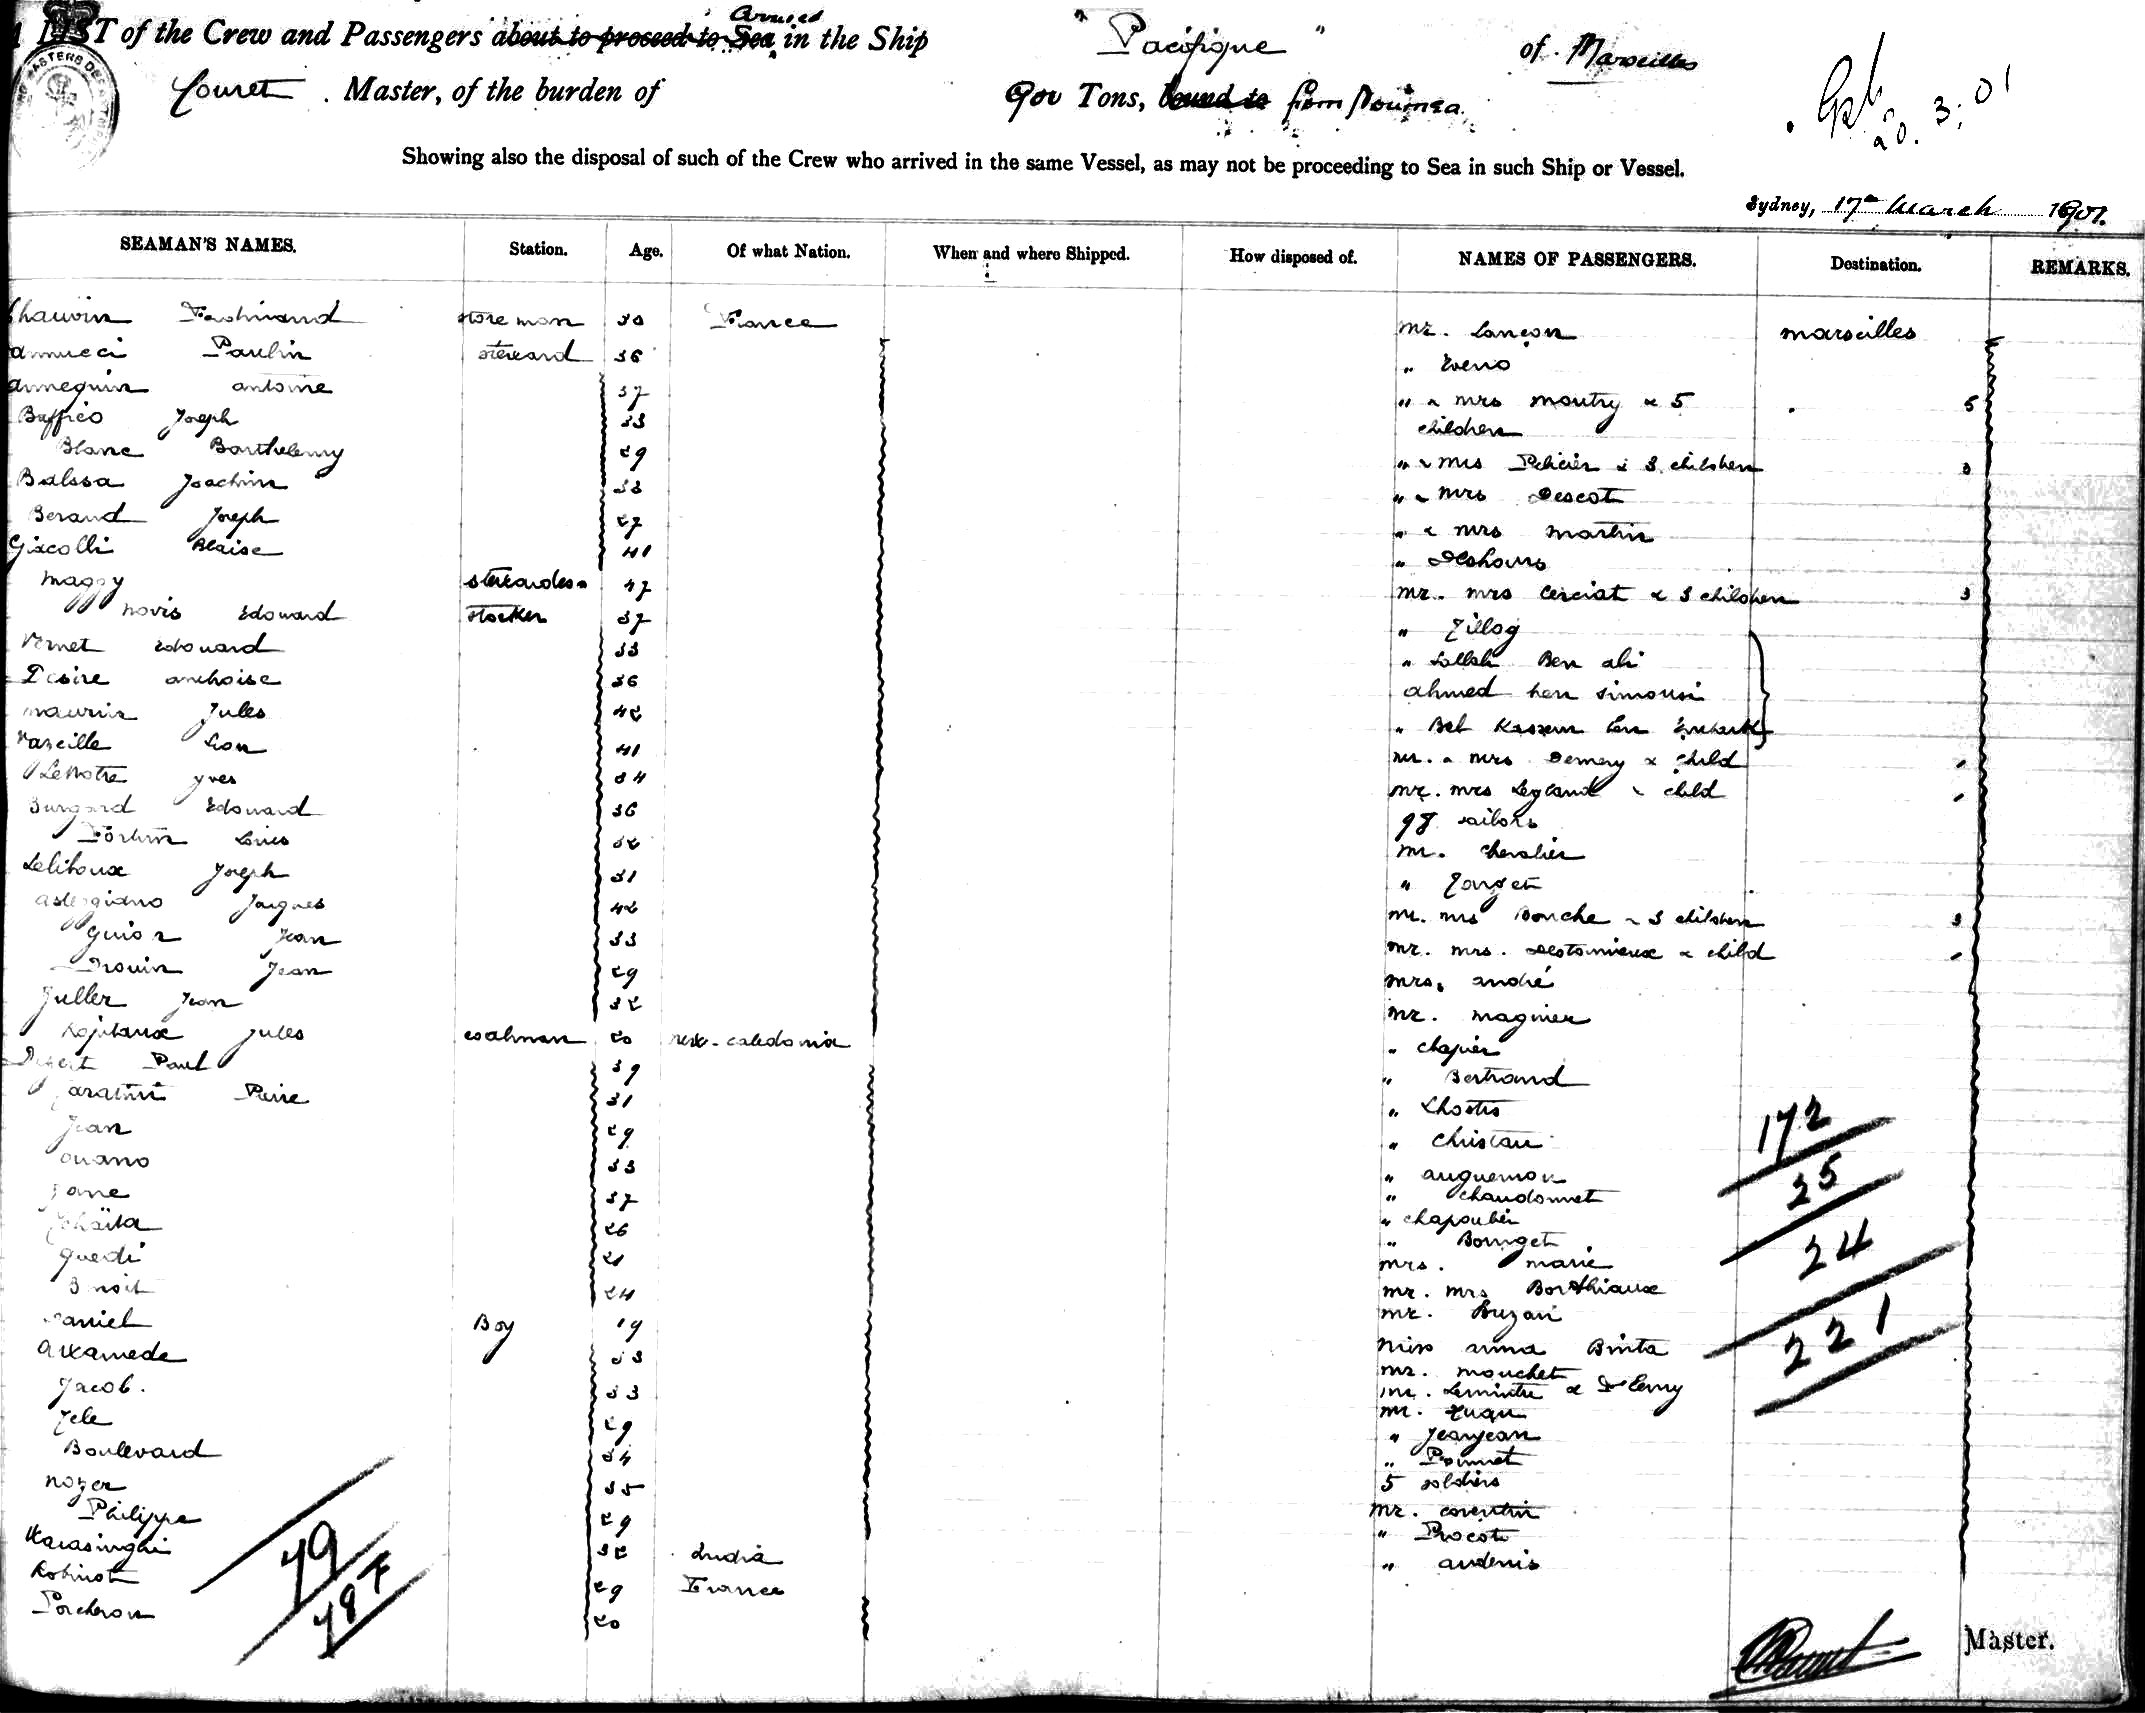 LIST of the Crew and Passengers about to proceed to Sea Arrived in the Ship "Pacifique" of Marseilles
Couret. Master, of the burden of Tons, bound to from Noumea.
20.3.01
Showing also the disposal of such of the Crew who arrived in the same Vessel, as may not be proceeding to Sea in such Ship or Vessel.
Sydney, 17th March 1901.
SEAMAN'S NAMES. Station. Age. Of what Nation. When and where Shipped. How disposed of. NAMES OF PASSENGERS. Destination. REMARKS.
Chauvin Ferdinand store man 30 France Mr. Lançon Marseilles
annucci Paulin steward 36 " Eveno
annequin antoine 37 " & mrs moutry & 5 5
Baffico Joseph 33 children
Blanc Barthelemy 29 " & mrs Pelicier & 3 children 3
Balssa Joachim 33 " & mrs Descot
Beraud Joseph 27 " & mrs martin
Giacolli Blaise 41 " Deshours
maggy stewardess 47 mr. mrs Cerciat & 3 children 3
novis Edouard stocker 37 " Zillog
Vernet Edouard 33 " Sallah Ben ali
Desire amboise 36 ahmed ben simousi
maurin Jules 42 " Bel Kassem ben
Vazeille Leon 41 mr. & mrs Demery & child
Le Notre yves 34 mr. mrs Legland & child
Burgard Edouard 36 98 sailors
Fortun Louis 32 mr. Chevalier
Lelihoux Joseph 31 " Zarget
astergiano Jacques 42 mr. mrs Bouche & 3 children 3
Guion Jean 33 mr. mrs. Destomieux & child
Drouin Jean 29 mrs. andré
Juller Jean 32 mr. magnier
Jules coalman 20 new-caledonia " chapier
Paul 39 " Bertrand
Pierre 31 " Lhostis
Jean 29 " Christau 172
ouano 33 " auguemon 25
37 " chaudonnet
26 " chapoulier
guedi 21 " Bourget 24
Benoit 24 mrs. marie
Daniel Boy 19 mr. mrs Borthiaux
mr. Buzan
arxamede 33 miss anna Binta 221
Jacob. 33 mr. mouchet
mr. Lemintre & D'Leruy
Jele 29 mr.
Boulevard 34 " Jeanjean
" Pommet
nozer 35 5 soldiers
Philippe 29 mr. corentin
Karasinghi 32 India " Procot
Robinot 29 France " audenis
Porcheron 20
79
78 F
Master.